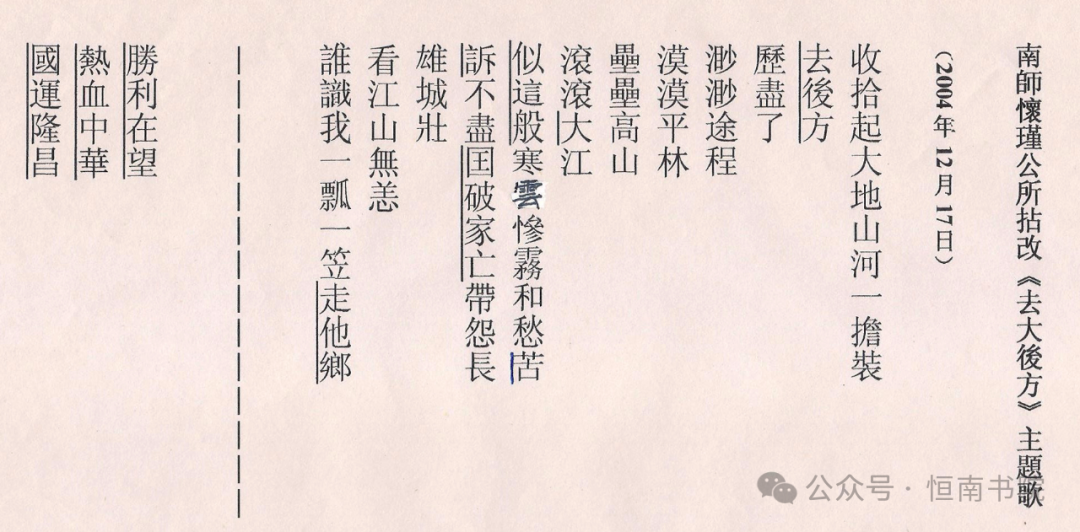 南師懷瑾公所拈改《去大後方》主題歌
（2004年12月17日）
收拾起大地山河一擔裝
去後方
歷盡了
渺渺途程
漠漠平林
壘壘高山
滾滾大江
似這般寒雲慘霧和愁苦
訴不盡国破家亡帶怨長
雄城壯
看江山無恙
誰識我一瓢一笠走他鄉
勝利在望
熱血中華
國運隆昌
公众号·恒南书院